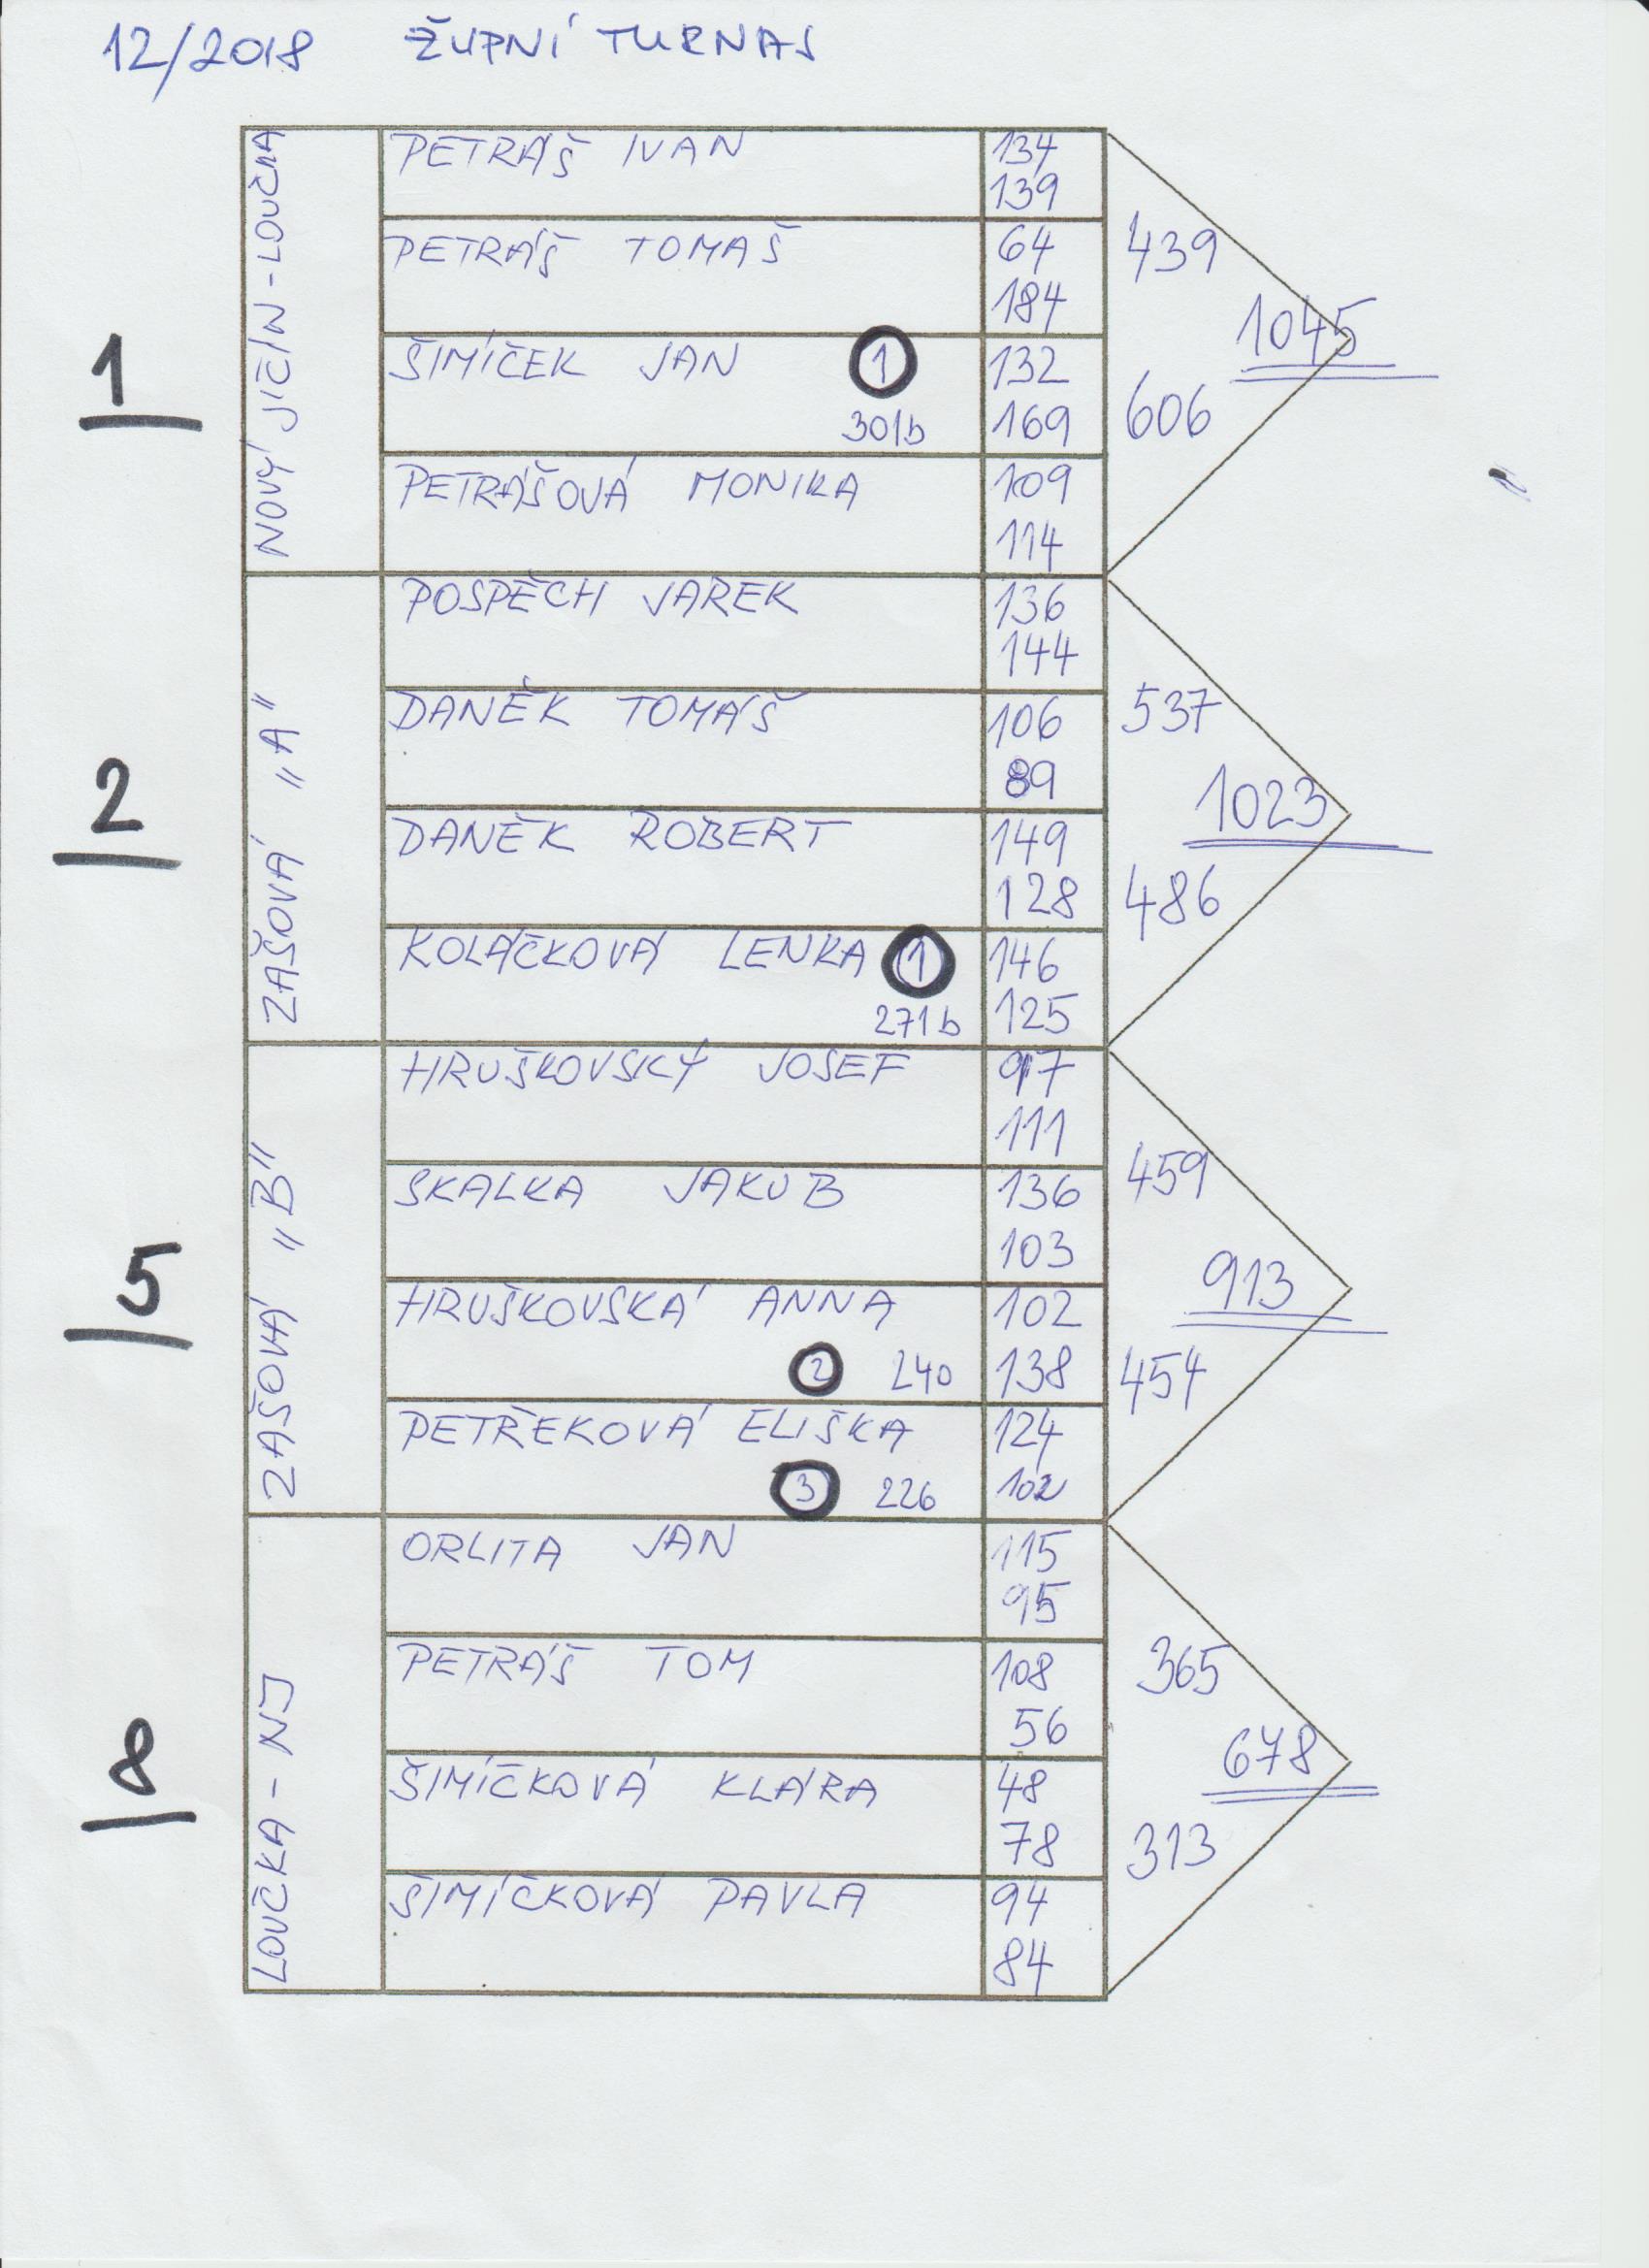 12/2018 ŽUPNÍ TURNAJ
1
NOVÝ JIČÍN - LOUČKA
PETRÁŠ IVAN 134
139
PETRÁŠ TOMAŠ 64
184
439
ŠIMÍČEK JAN 1 132
301b 169
606
1045
PETRÁŠOVÁ MONIKA 109
114
2
ZAŠOVÁ „A"
POSPĚCH JAREK 136
144
DANĚK TOMÁŠ 106
89
537
DANĚK ROBERT 149
128
486
1023
KOLÁČKOVÁ LENKA 1 146
271b 125
5
ZAŠOVÁ „B"
HRUŠKOVSKÝ JOSEF 97
111
SKALKA JAKUB 136
103
459
HRUŠKOVSKÁ ANNA 102
2 240 138
454
913
PETŘEKOVÁ ELIŠKA 124
3 226 102
8
LOUČKA - NJ
ORLITA JAN 115
95
PETRÁŠ TOM 108
56
365
ŠIMÍČKOVÁ KLÁRA 48
78
313
678
ŠIMÍČKOVÁ PAVLA 94
84